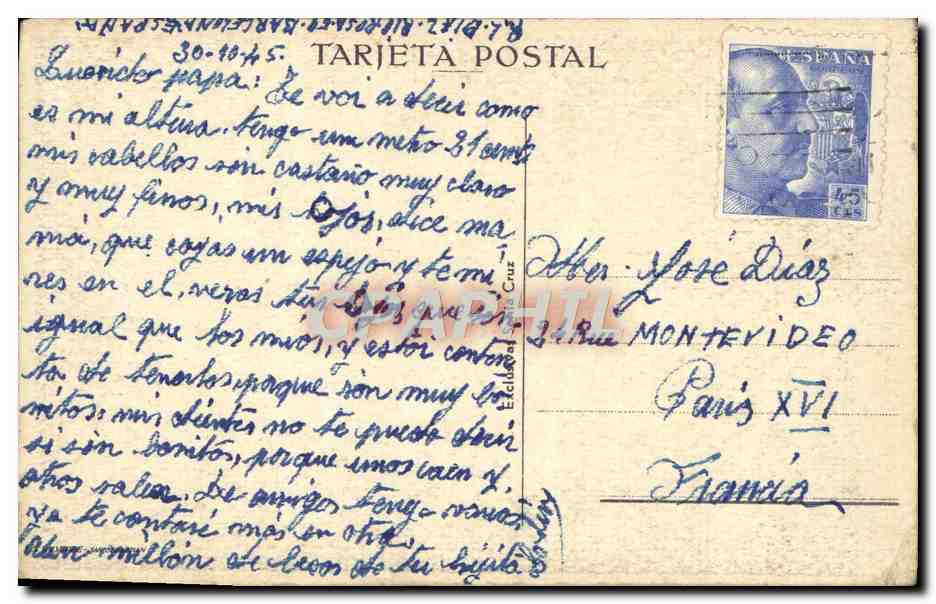 R. L. DIAZ RIO ROSA BARCELONA (ESPAÑA)
30-10-45.
TARJETA POSTAL
Querido papa: Te voi a decir como
es mi altura. tengo un metro 21 cent
mis cabellos son castaño muy claro
y muy finos, mis ojos, dice ma
má, que cojas un espejo y te mi
res en el, veras tus ojos, que son
igual que los mios, y estoi conten
ta de tenerlos, porque son muy bo
nitos: mis dientes no te puedo decir
si són bonitos, porque unos caen y
otros salen. De amigos tengo varios
ya te contaré más en otra.
un millón de besos de tu hijita
Exclusivas Santa Cruz
ESPAÑA
CORREOS
45
CTS
José Diáz
24 Rue MONTEVIDEO
Paris XVI
Francia
CPAPHIL